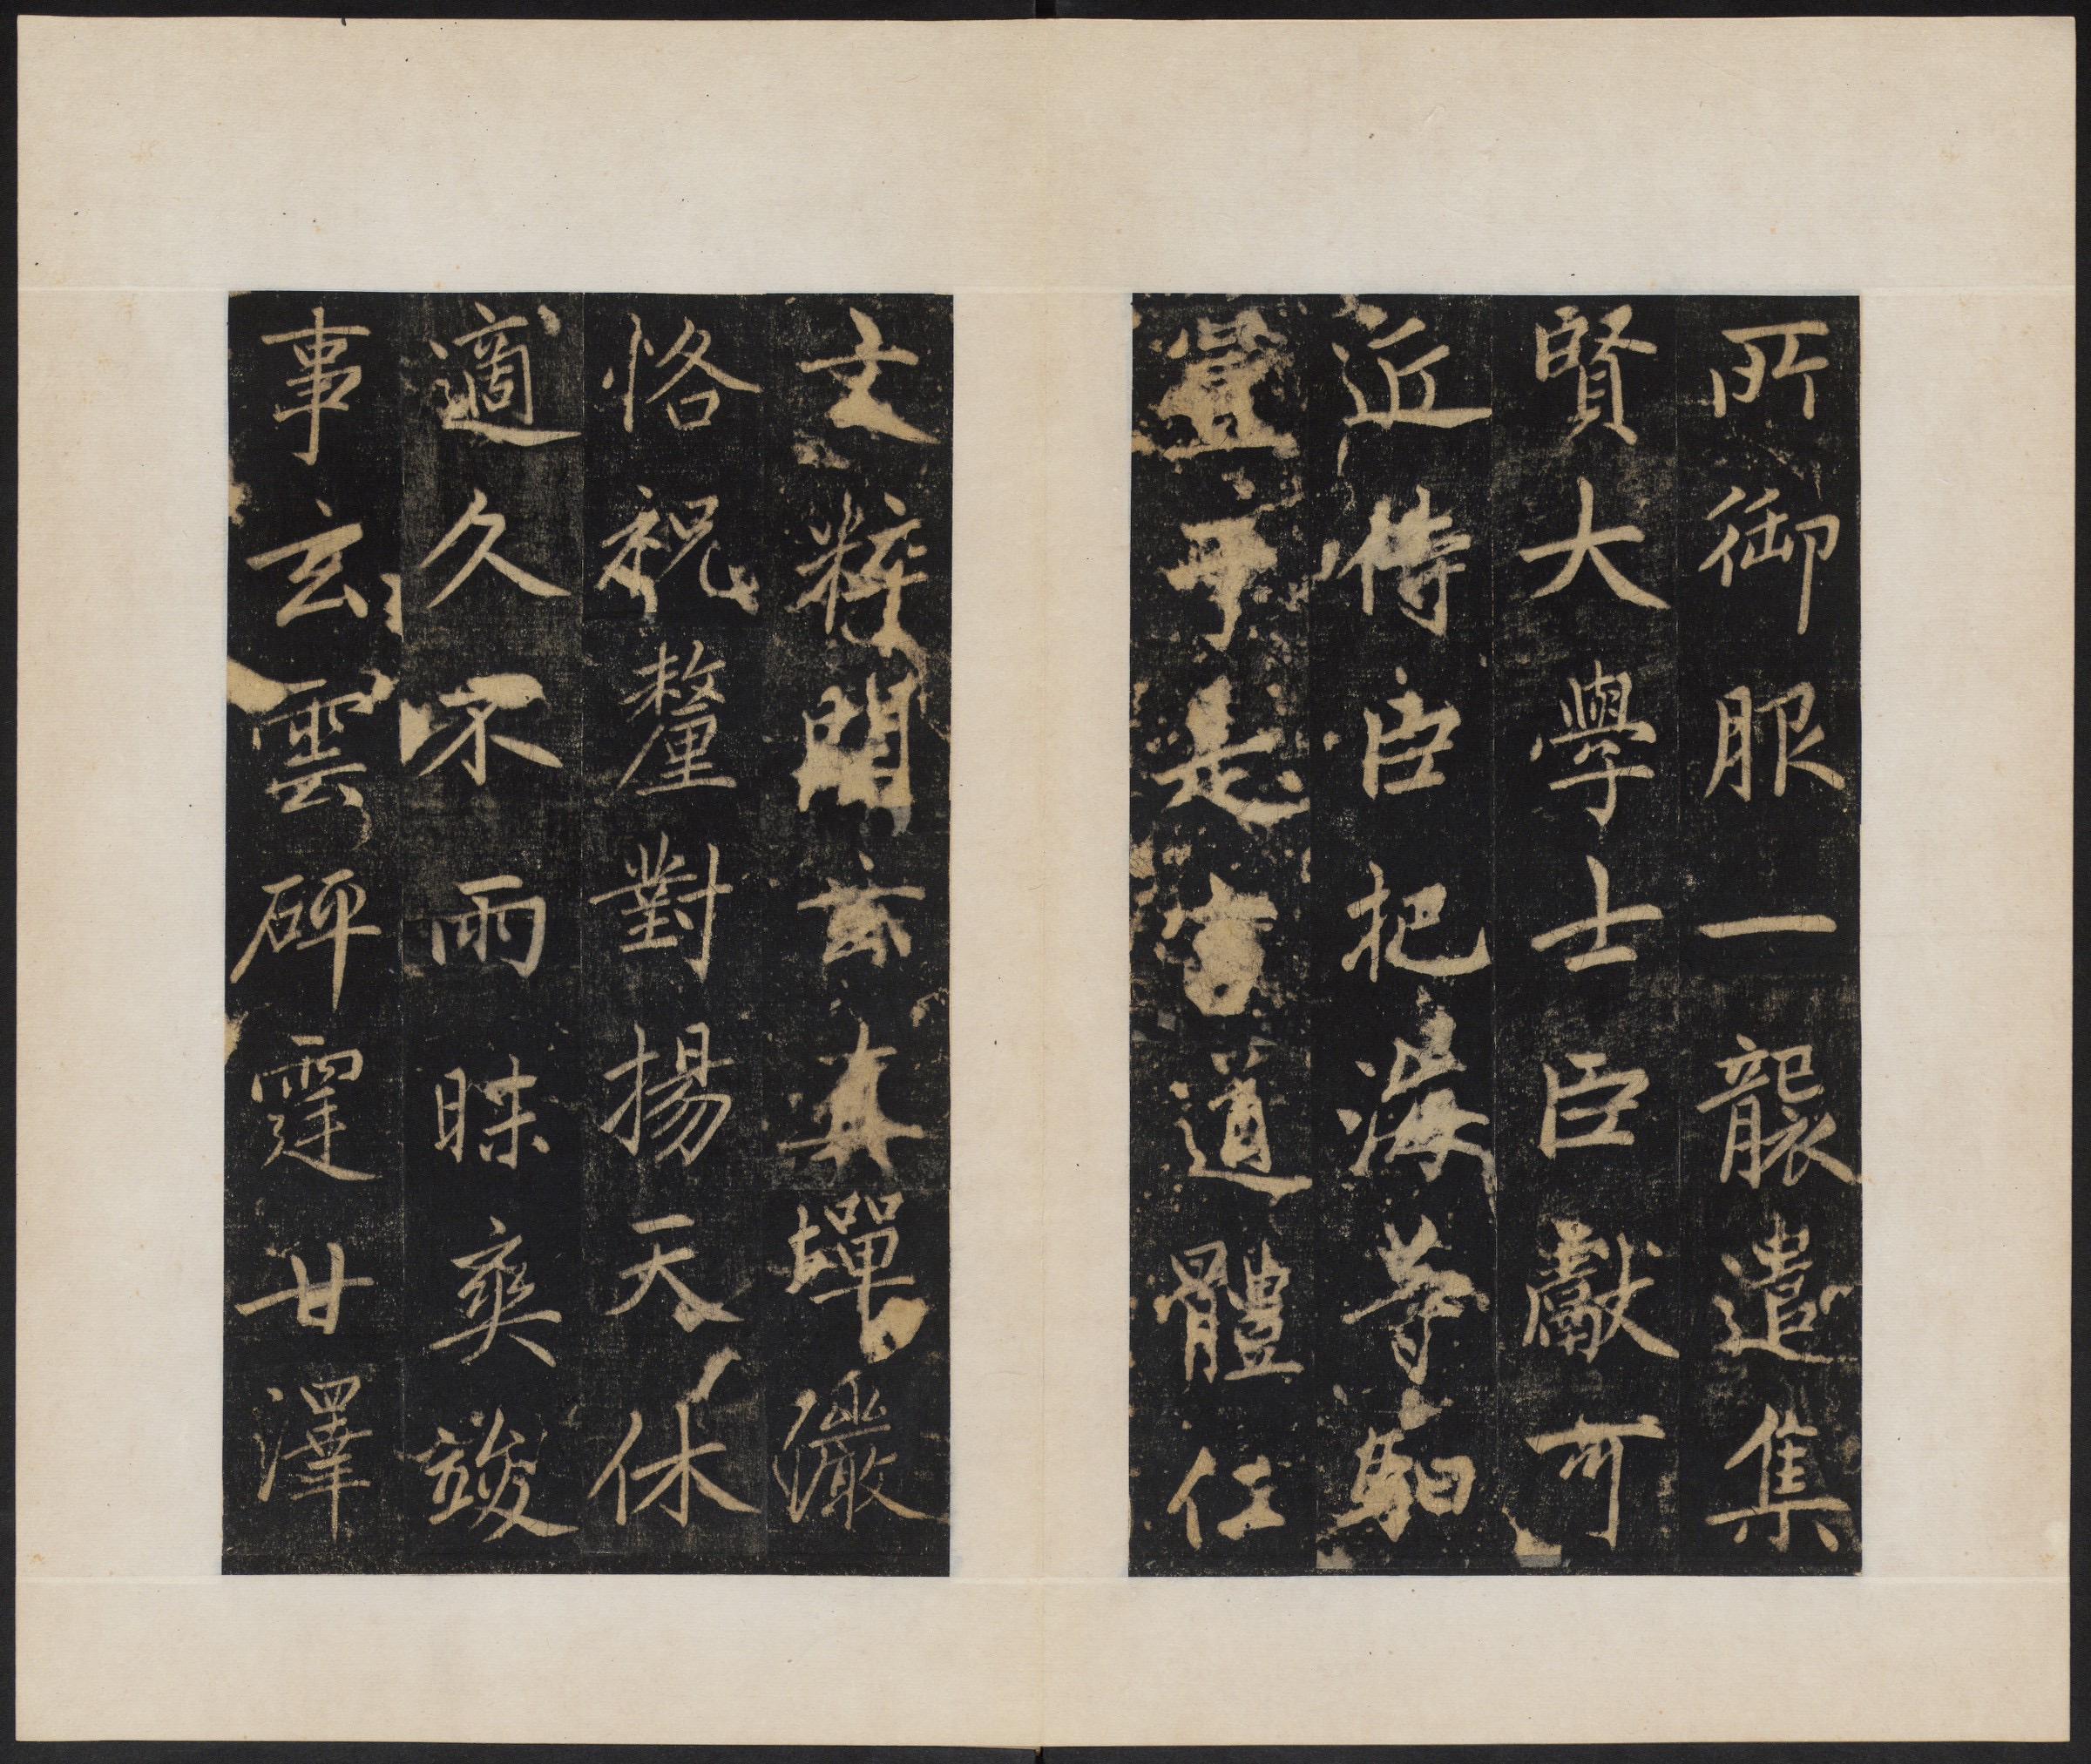 所御服一襲遣集
賢大學士臣獻可
近侍臣把海等馹
置于是道體仁
文粹開玄真蟬儼
恪祝釐對揚天休
適久不雨眛爽竣
事玄雲砰霆甘澤